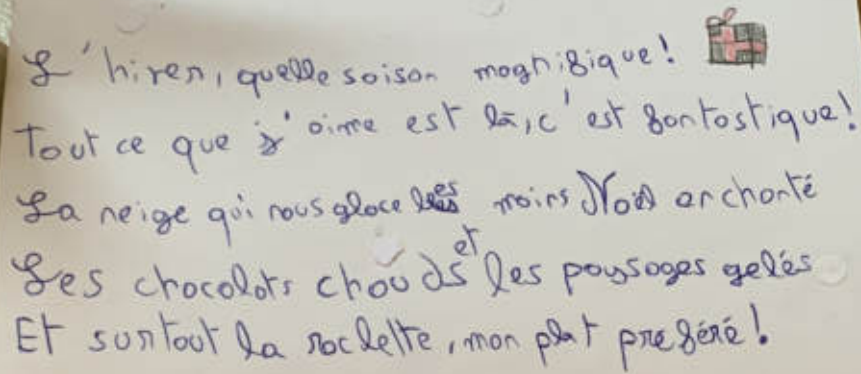 L'hiver, quelle saison magnifique!
Tout ce que j'aime est là, c'est fantastique!
La neige qui nous glace les mains Noël enchanté
Les chocolats chauds et les paysages gelés
Et surtout la raclette, mon plat préféré!